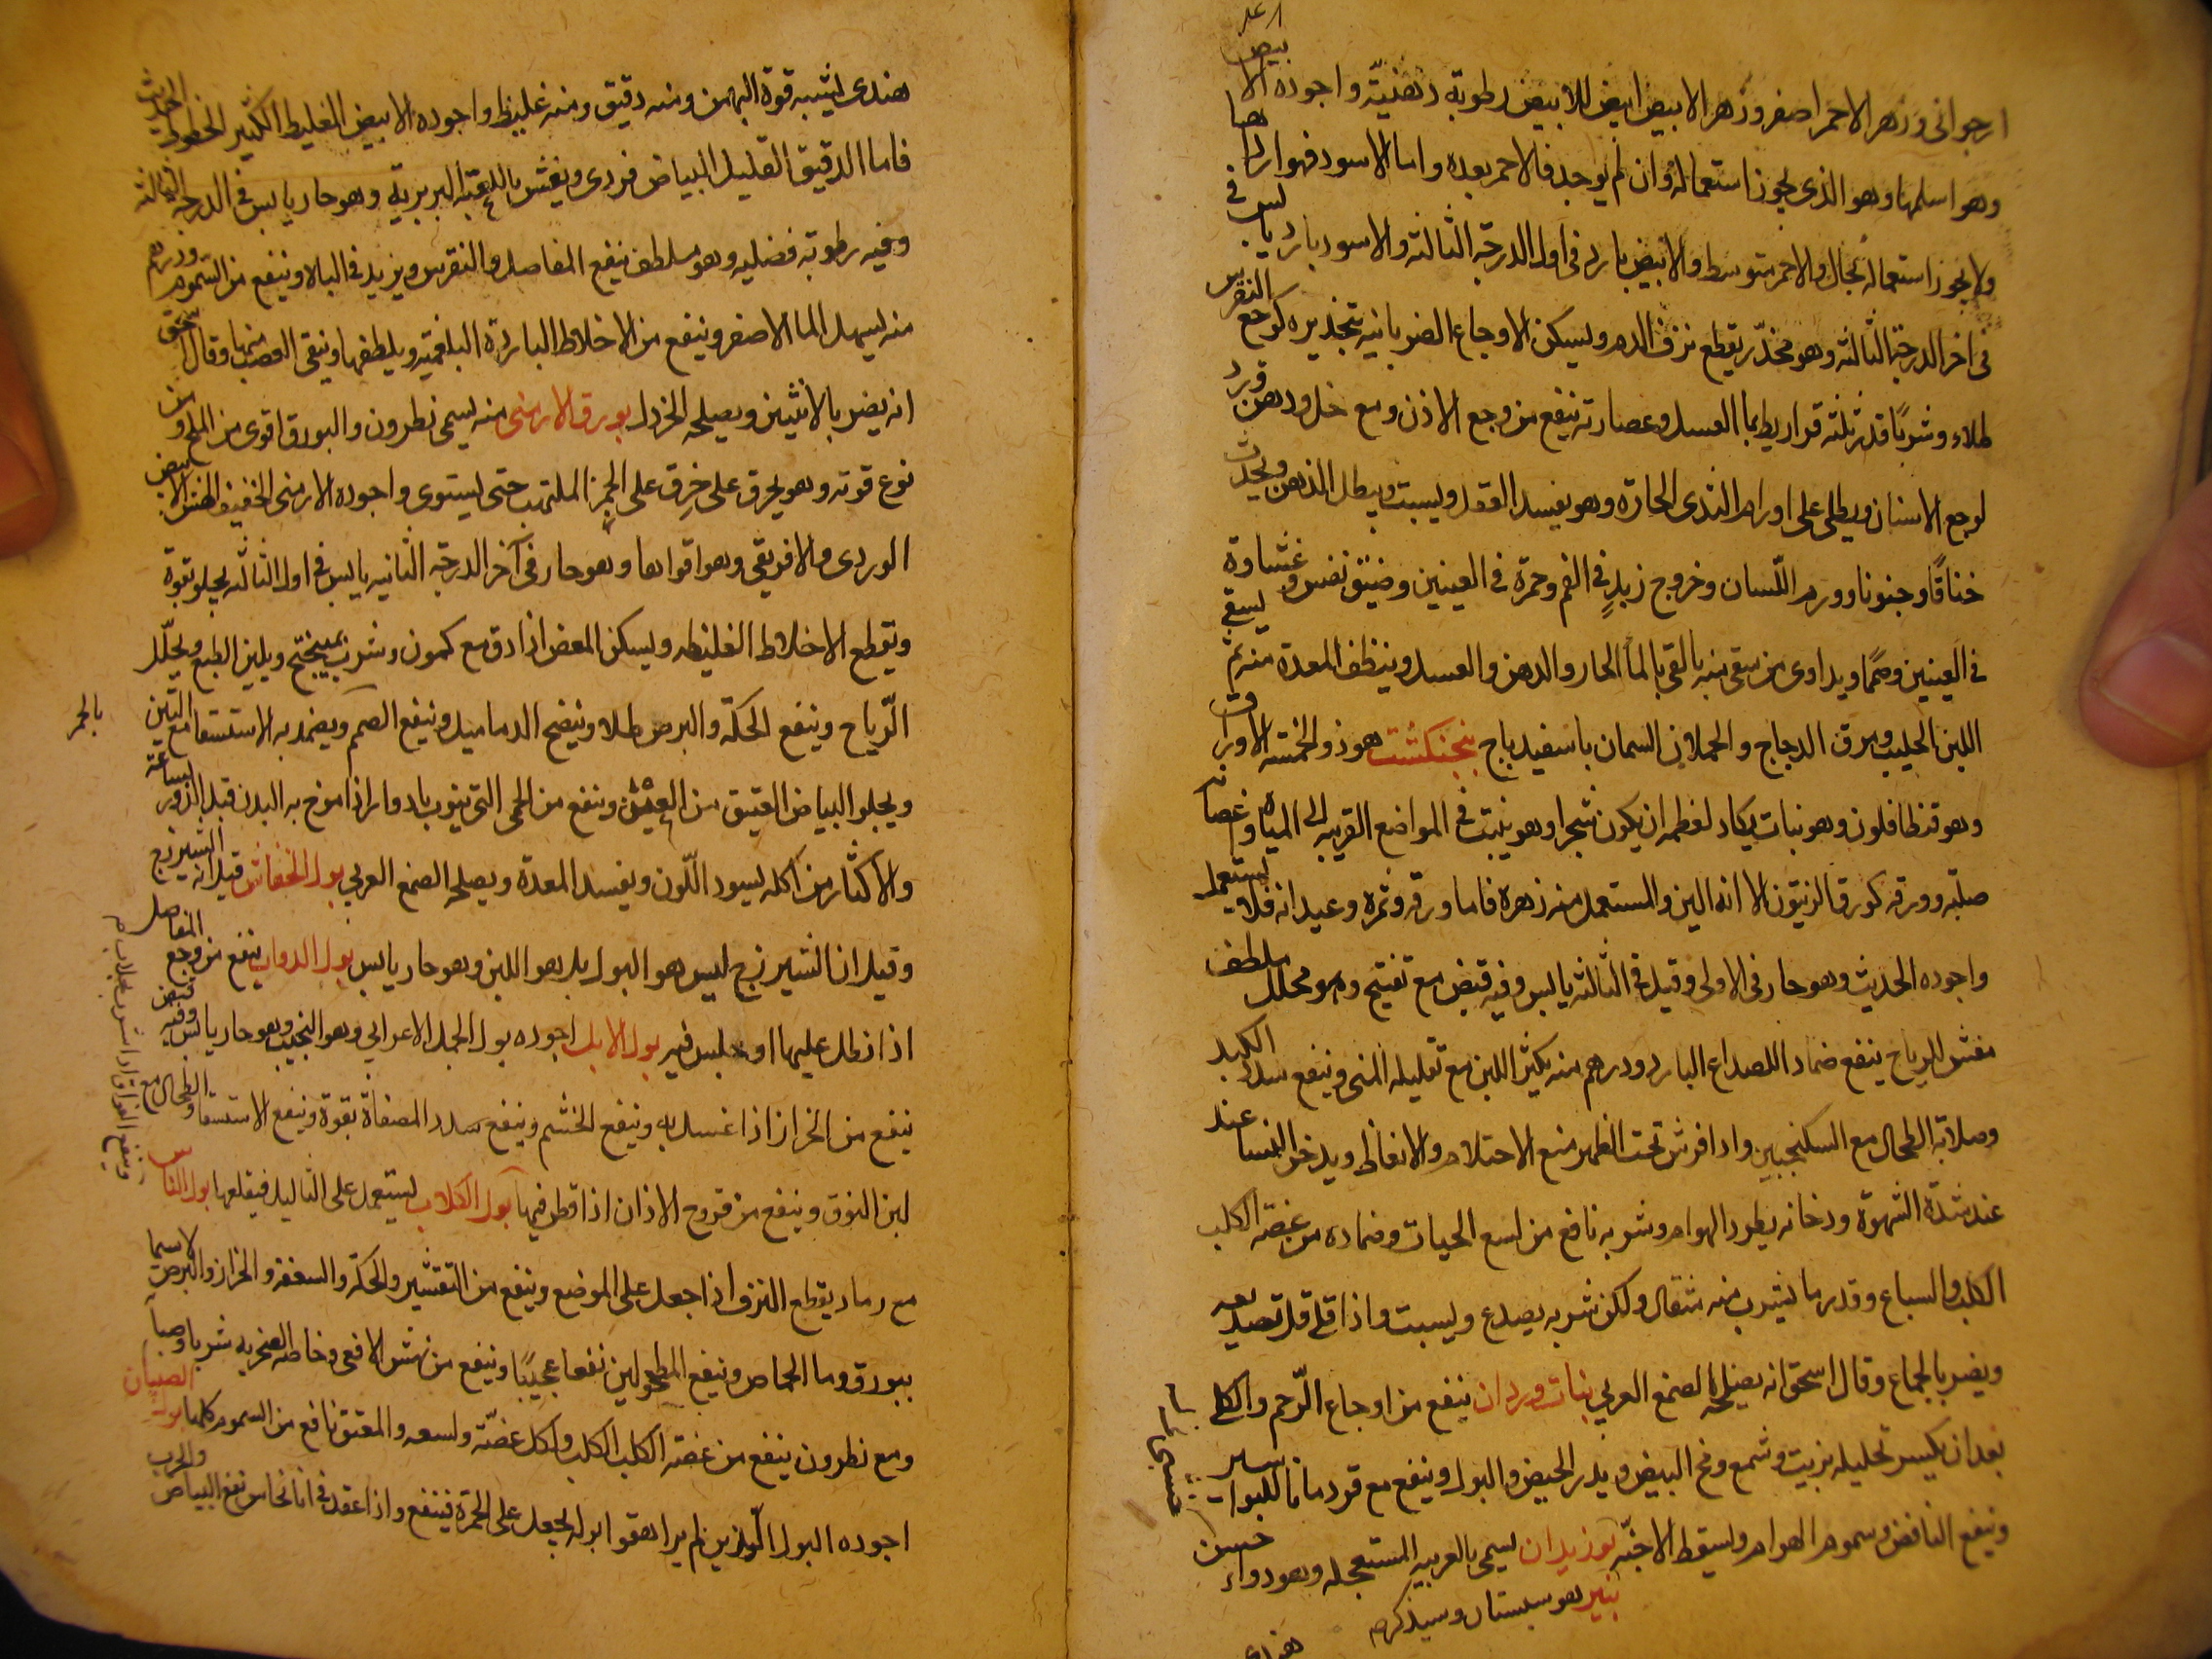 ارجوانى وزهر الاحمر اصفر وزهر الابيض ابيض للابيض رطوبة دهنيّة واجوده الابيض
وهو اسلمها وهو الذى يجوز استعماله وان لم يوجد فالاحمر بعده واما الاسود فهو اردأها
ولا يجوز استعماله بحال والاحمر متوسط والابيض بارد فى اول الدرجة الثالثه والاسود بارد يابس فى
فى اخر الدرجة الثالثه وهو مخدّر يقطع نزف الدم ويسكن الاوجاع الضربانيه بتخديره كوجع النقرس
طلاء وشربًا قدر ثلثه قراريط بما العسل وعصارته ينفع من وجع الاذن ومع خل ودهن ورد
لوجع الاسنان ويطلى على اورام الثدى الحارة وهو يفسد العقل ويسبت ويبطل الذهن ويحدث
خناقًا وجنونا وورم اللّسان وخروج زبدٍ فى الفم وحمرة فى العينين وضيق نفس وغشاوة
فى العينين وصممًا ويداوى من سقى منه بالقى بالماء الحار والدهن والعسل وينظف المعدة منه ثم يسقى
اللبن الحليب ومرق الدجاج والحملان السمان باسفيدباج بنجنكشت هو ذو الخمسة الاوراق
وهو قنطافلون وهو نبات يكاد لعظمه ان يكون شجرا وهو ينبت فى المواضع القريبه الى المياه وغصانه
صلبه وورقه كورق الزيتون الا انه الين والمستعمل منه زهره فاما ورقه وثمره وعيدانه فلا يستعمل
واجوده الحديث وهو حار فى الاولى وقيل فى الثالثه يابس وفيه قبض مع تفتيح وهو محلل ملطف
مفش للرياح ينفع ضمادا للصداع البارد ودرهم منه يكثر اللبن مع تقليله المنى وينفع سدد الكبد
وصلابة الطحال مع السكنجبين واذا افرش تحت الظهر منع الاحتلام والانعاظ ويدخن النسا عند
عند شدة الشهوة ودخانه يطرد الهوام وشربه نافع من لسع الحيات وضماده من عضة الكلب
الكلب والسباع وقدر ما يشرب منه مثقال ولكن شربه يصدع ويسبت واذا قلى قل تصديعه
ويضر بالجماع وقال اسحق انه يصلحه الصمغ العربى بنات وردان ينفع من اوجاع الرّحم والكلى
بعد ان يكسر تحليله بزيت وشمع ومخ البيض ويدر الحيض والبول وينفع مع قردمانا للبواسير
وينفع النافض وسموم الهوام ويسقط الاجنّه بوزيدان يسمى بالعربيه المستعجله وهو دواء حسن
بنير هو سبستان وسيذكر
هندى
هندى يشبه قوة البهمن ومنه دقيق ومنه غليظ واجوده الابيض الغليظ الكثير الخطوط الحديث
فاما الدقيق القليل البياض فردى ويغش باللعبة البربرية وهو حار يابس فى الدرجة الثالثه
وفيه رطوبة فضليه وهو ملطف ينفع المفاصل والنقرس ويزيد فى الباه وينفع من السموم ودرهم
منه يسهل الما الاصفر وينفع من الاخلاط الباردة البلغميه ويلطفها وينقى العصب منها وقال اسحق
انه يضر بالانثيين ويصلحه الخردل بورق الارمنى منه يسمى نطرون والبورق اقوى من الملح ومن
نوع قوته وهو يحرق على خزف على الجمر الملتهب حتى يستوى واجوده الارمنى الخفيف الهش الابيض
الوردى والافريقى وهو اقواها وهو حار فى آخر الدرجة الثانيه يابس فى اول الثالثه يجلو بقوة
ويقطع الاخلاط الغليظه ويسكن المغص اذا دق مع كمون وشرب بميبختج ويلين الطبع ويحلّل
الرّياح وينفع الحكّة والبرص طلا وينضج الدماميل وينفع الصمم ويضمد به الاستسقا مع التين
بالخمر
ويجلو البياض العتيق من العين وينفع من الحمى التى تنوب بادوار اذا مرخ به البدن قبل الدور بساعة
والاكثار من اكله يسود اللّون ويفسد المعدة ويصلحه الصمغ العربى بول الخفاش قيل انه الشيرزج
وقيل ان الشيرزج ليس هو البول بل هو اللبن وهو حار يابس بول الدواب ينفع من وجع المفاصل
اذا نطل عليها او جلس فيه بول الابل اجوده بول الجمل الاعرابى وهو النجيب وهو حار يابس وفيه قبض
ينفع من الحزاز اذا غسل به وينفع الخشم وينفع سدد المصفاة بقوة وينفع الاستسقا والطحال مع
لبن النوق وينفع من قروح الاذان اذا قطر فيها بول الكلاب يستعمل على الثاليل فيقلعها بول الناس
مع رماد يقطع النزف اذا جعل على الموضع وينفع من التقشير والحكة والسعفه والحزاز والبرص لاسيما
ببورق وما الحماض وينفع المطحولين نفعا عجيبًا وينفع من نهش الافعى وخاصة الصخريه شربا وصبا
ومع نطرون ينفع من عضة الكلب الكلب وكل عضّة ولسعه والمعتق نافع من السموم كلها بول الصبيان
اجوده البول الذين لم يراهقوا ابوله يجعل على الحمرة فينفع واذا عقد فى انا نحاس نفع البياض والجرب